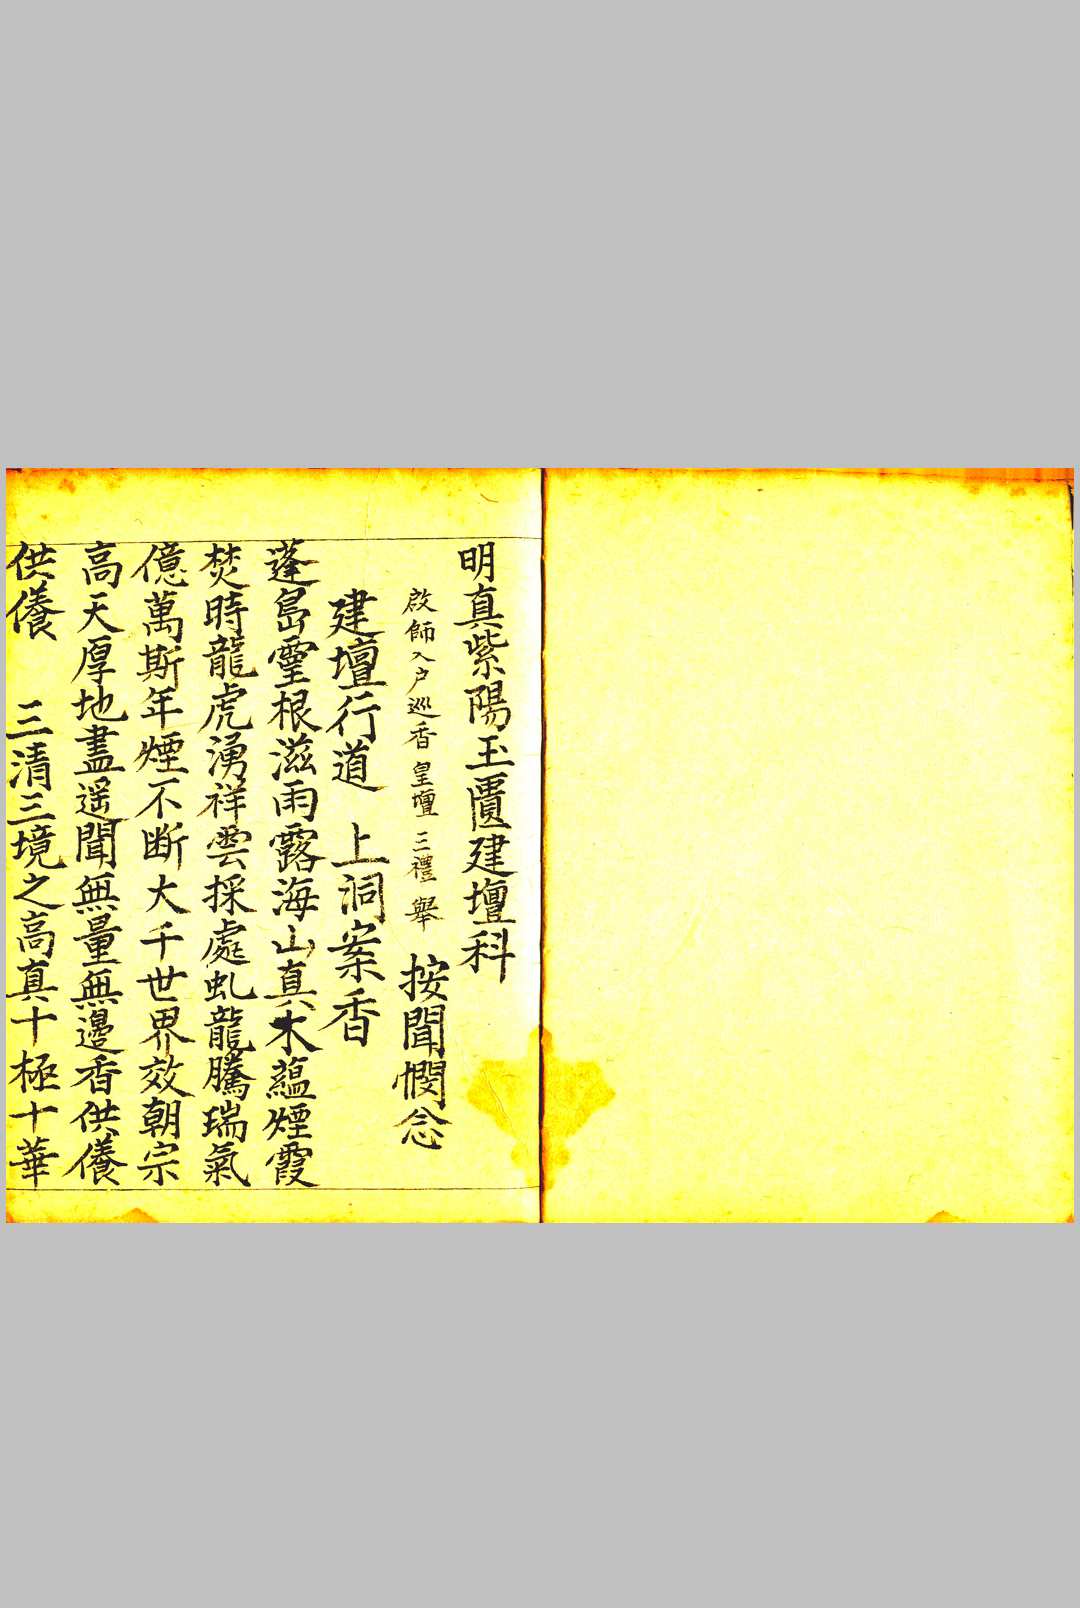 明真紫陽玉匱建壇科
啟師入户巡香 皇壇 三禮 舉 按聞憫念
建壇行道 上洞案香
蓬島靈根滋雨露海山真木蘊煙霞
焚時龍虎湧祥雲採處虬龍騰瑞氣
億萬斯年煙不断大千世界效朝宗
高天厚地盡遥聞無量無邊香供養
供養 三清三境之高真十極十華